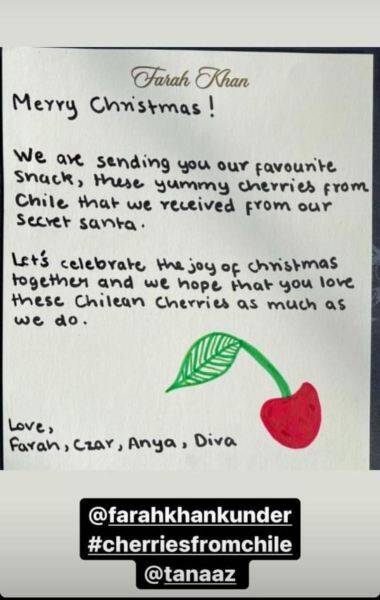 Farah Khan
Merry Christmas!
We are sending you our favourite
snack, these yummy cherries from
Chile that we received from our
secret santa.
Let's celebrate the joy of christmas
together and we hope that you love
these Chilean Cherries as much as
we do.
Love,
Farah, Czar, Anya, Diva
@farahkhankunder
#cherriesfromchile
@tanaaz